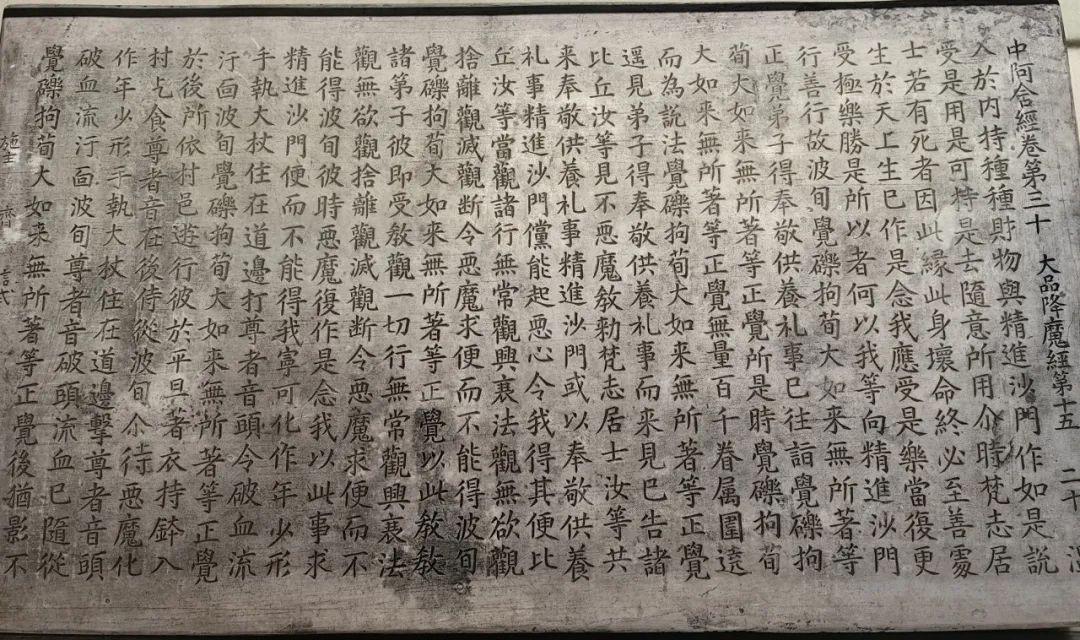 中阿含經卷第三十 大品降魔經第十五 二十
人於内持種種財物與精進沙門作如是說
受是用是可持是去隨意所用尒時梵志居
士若有死者因此緣此身壞命終必至善處
生於天上生已作是念我應受是樂當復更
受極樂勝是所以者何以我等向精進沙門
行善行故波旬覺礫拘荀大如來無所著等
正覺弟子得奉敬供養礼事已往詣覺礫拘
荀大如来無所著等正覺所是時覺礫拘荀
大如来無所著等正覺無量百千眷属圍遶
而為說法覺礫拘荀大如来無所著等正覺
遥見弟子得奉敬供養礼事而来見已告諸
比丘汝等見不悪魔教勑梵志居士汝等共
来奉敬供養礼事精進沙門或以奉敬供養
礼事精進沙門儻能起悪心令我得其便比
丘汝等當觀諸行無常觀興衰法觀無欲觀
捨離觀滅觀断令悪魔求便而不能得波旬
覺礫拘荀大如来無所著等正覺以此教教
諸弟子彼即受教觀一切行無常觀興衰法
觀無欲觀捨離觀滅觀断令悪魔求便而不
能得波旬彼時悪魔復作是念我以此事求
精進沙門便而不能得我寧可化作年少形
手執大杖住在道邊打尊者音頭令破血流
汙面波旬覺礫拘荀大如来無所著等正覺
於後所依村邑遊行彼於平旦著衣持鉢入
村乞食尊者音在後侍從波旬尒時悪魔化
作年少形手執大杖住在道邊擊尊者音頭
破血流汙面波旬尊者音破頭流血已隨從
覺礫拘荀大如来無所著等正覺後猶影不